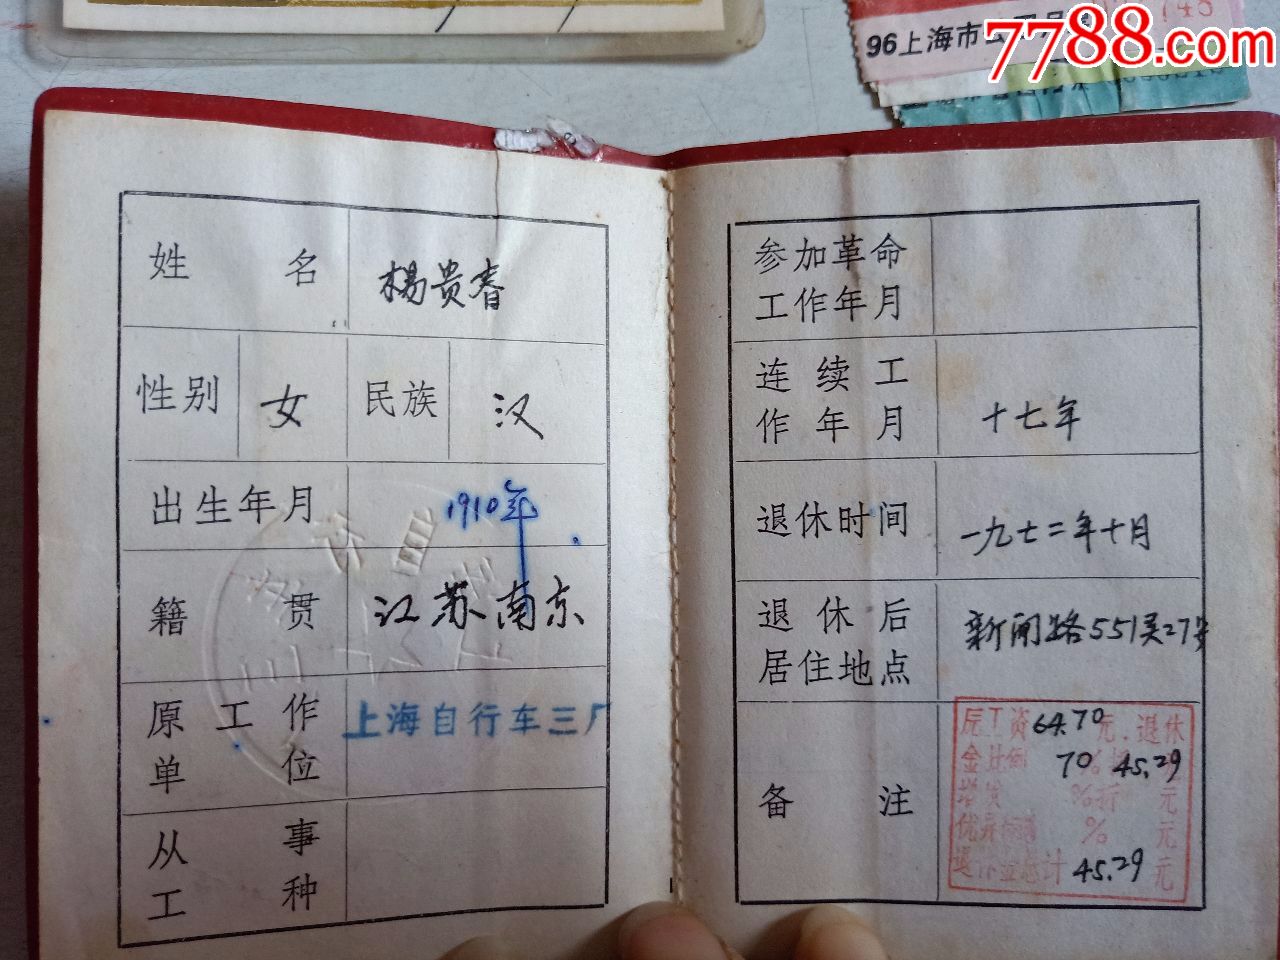 96上海市公
7788.com
姓名 楊贵春
性别 女 民族 汉
出生年月 1910年
籍贯 江苏南京
原工作单位 上海自行车三厂
从事工种
参加革命工作年月
连续工作年月 十七年
退休时间 一九七二年十月
退休后居住地点 新闸路551弄27号
备注
原工资64.70元.退休
金比例 70% 45.29
增发 %折 元
优异 % 元
退休金总计 45.29元